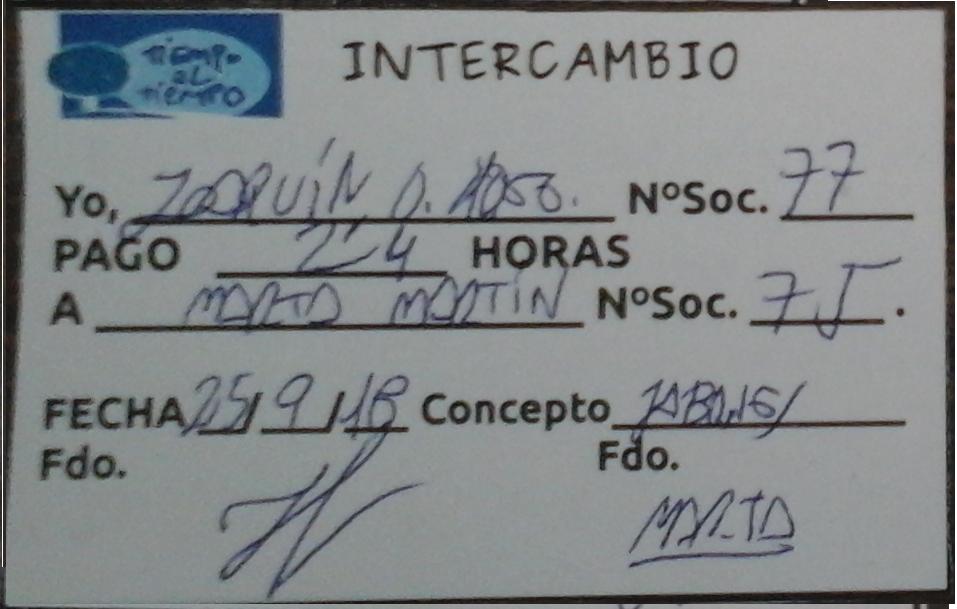 TIEMPO
AL
TIEMPO
INTERCAMBIO
Yo, JOAQUÍN O. NºSoc. 77
PAGO 2'4 HORAS
A MARTA MARTÍN NºSoc. 75.
FECHA 25/9/18 Concepto
Fdo. Fdo.
MARTA